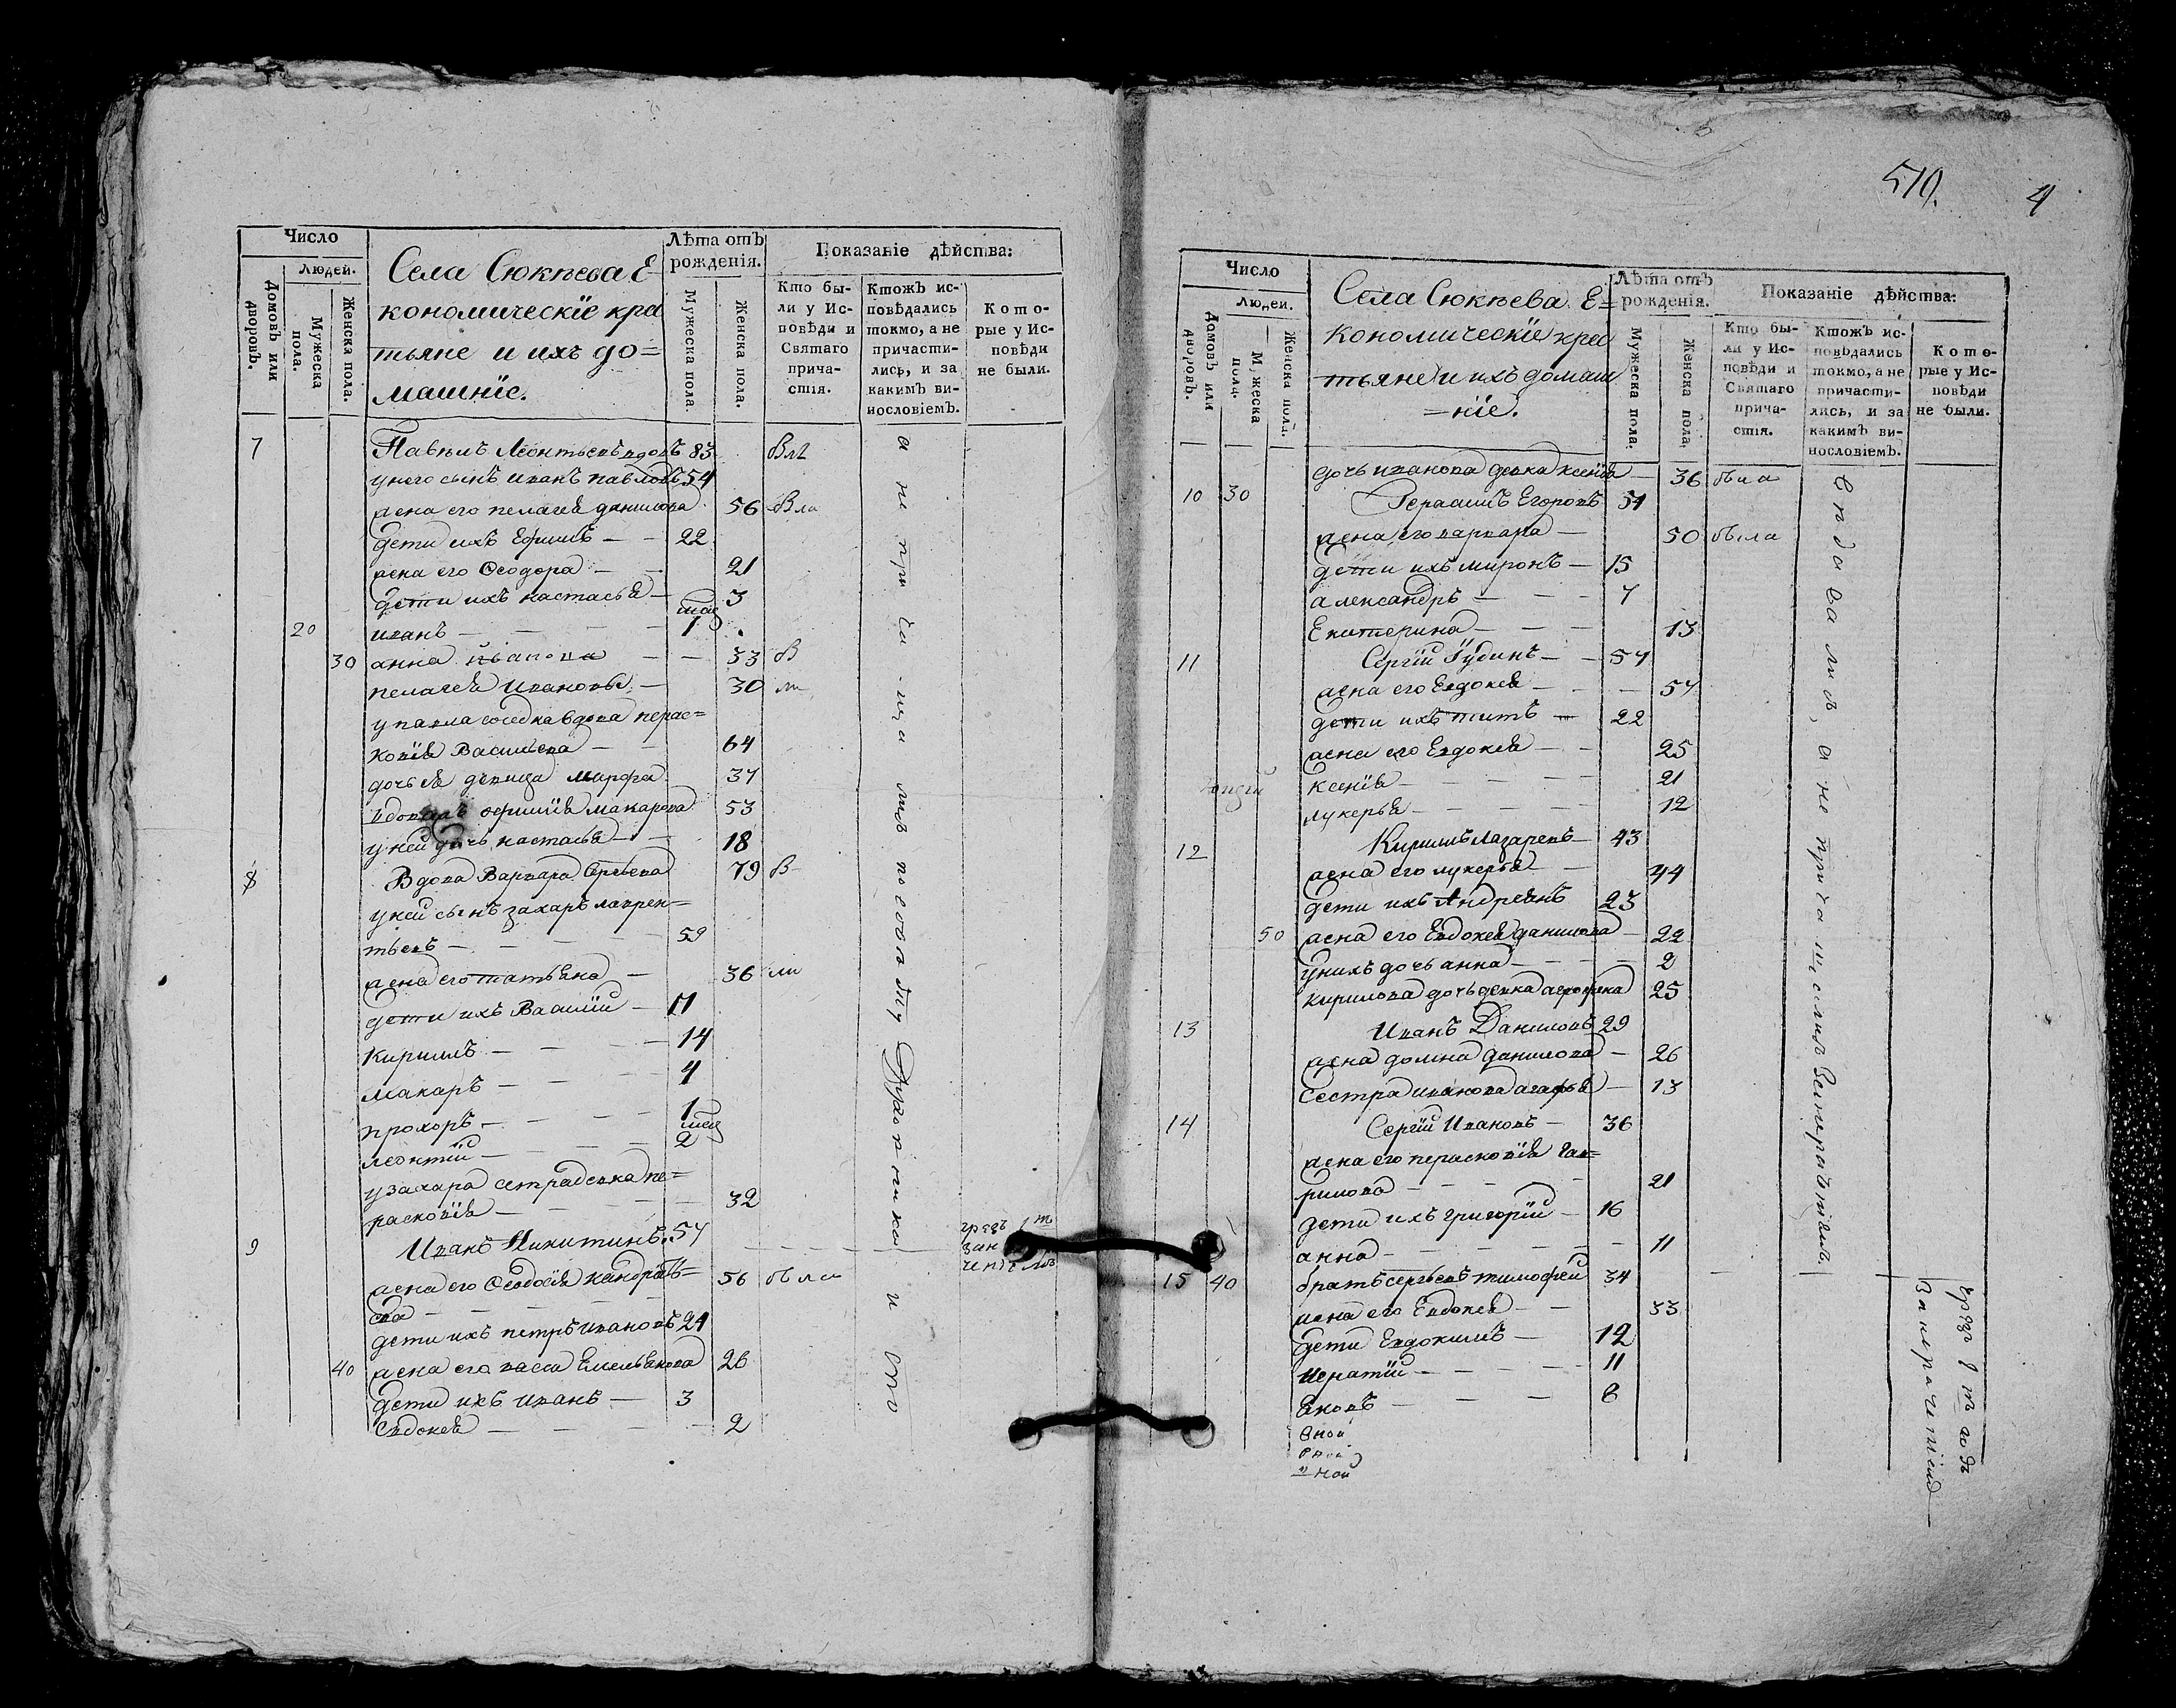 Число
Людей.
Домовъ или дворовъ.
Мужеска пола.
Женска пола.
Села Сюкѣева Е-
кономическіе кре
тьяне и ихъ до=
машніе.
Лѣта отъ рожденія.
Мужеска пола.
Женска пола.
Показаніе дѣйства:
Кто бы-
ли у Ис-
повѣди и
Святаго
прича-
стія.
Ктожъ ис-
повѣдались
токмо, а не
причасти-
лись, и за
какимъ ви-
нословіемъ.
Кото-
рые у Ис-
повѣди
не были.
7 Павелъ Леонтьевъ вдовъ 83
у него сынъ иванъ павловъ 54
жена его пелагея данилова 56
дети ихъ Ефимъ 22
жена его Ѳеодора 21
дети ихъ настасья 3
20 иванъ 1
30 анна иванова 33
пелагея ивановы 30
у павла соседка вдова парас=
ковія Васильева 64
дочь ея девица Марфа 37
офимія макарова 53
у ней дочь настасья 18
8 Вдова Варвара Сергеева 79
у ней сынъ захаръ лаврен=
тьевъ 59
жена его татьяна 36
дети ихъ Василій 17
Кирилъ 14
макаръ 4
прохоръ 1
леонтій 2
у захара сестра девка пе=
расковія 32
9 Иванъ Никитинъ 57
жена его Ѳеодосія кандрать=
ева 56 были
дети ихъ петръ ивановъ 24
40 жена его васса Емельянова 26
дети ихъ иванъ 3
Евдокея 2
а не при ча ща лись по совѣту Духовника и ото
510.
4
Число
Людей.
Домовъ или дворовъ.
Мужеска пола.
Женска пола.
Села Сюкѣева Е=
кономическіе кре
тьяне и ихъ домаш
=ніе.
Лѣта отъ рожденія.
Мужеска пола.
Женска пола.
Показаніе дѣйства:
Кто бы-
ли у Ис-
повѣди и
Святаго
прича-
стія.
Ктожъ ис-
повѣдались
токмо, а не
причасти-
лись, и за
какимъ ви-
нословіемъ.
Кото-
рые у Ис-
повѣди
не были.
дочь иванова девка ксенія 36 была
10 30 Герасимъ Егоровъ 54
жена его варвара 50 была
дети ихъ миронъ 15
александръ 7
Екатерина 13
11 Сергій Губинъ 57
жена его Евдокея 57
дети ихъ титъ 22
жена его Евдокея 25
ксенія 21
лукерья 12
12 Кирилъ Лазаревъ 43
жена его лукерья 44
дети ихъ Андреянъ 23
50 жена его Евдокея данилова 22
у нихъ дочь анна 2
кирилова дочь девка 25
13 Иванъ Даниловъ 29
жена домна данилова 26
Сестра иванова агафья 13
14 Сергій Ивановъ 36
жена его перасковія Гав=
рилова 21
дети ихъ григорій 16
анна 11
15 40 братъ сергеевъ тимофей 34
жена его Евдокея 33
дети Евдокимъ 12
игнатій 11
яковъ 8